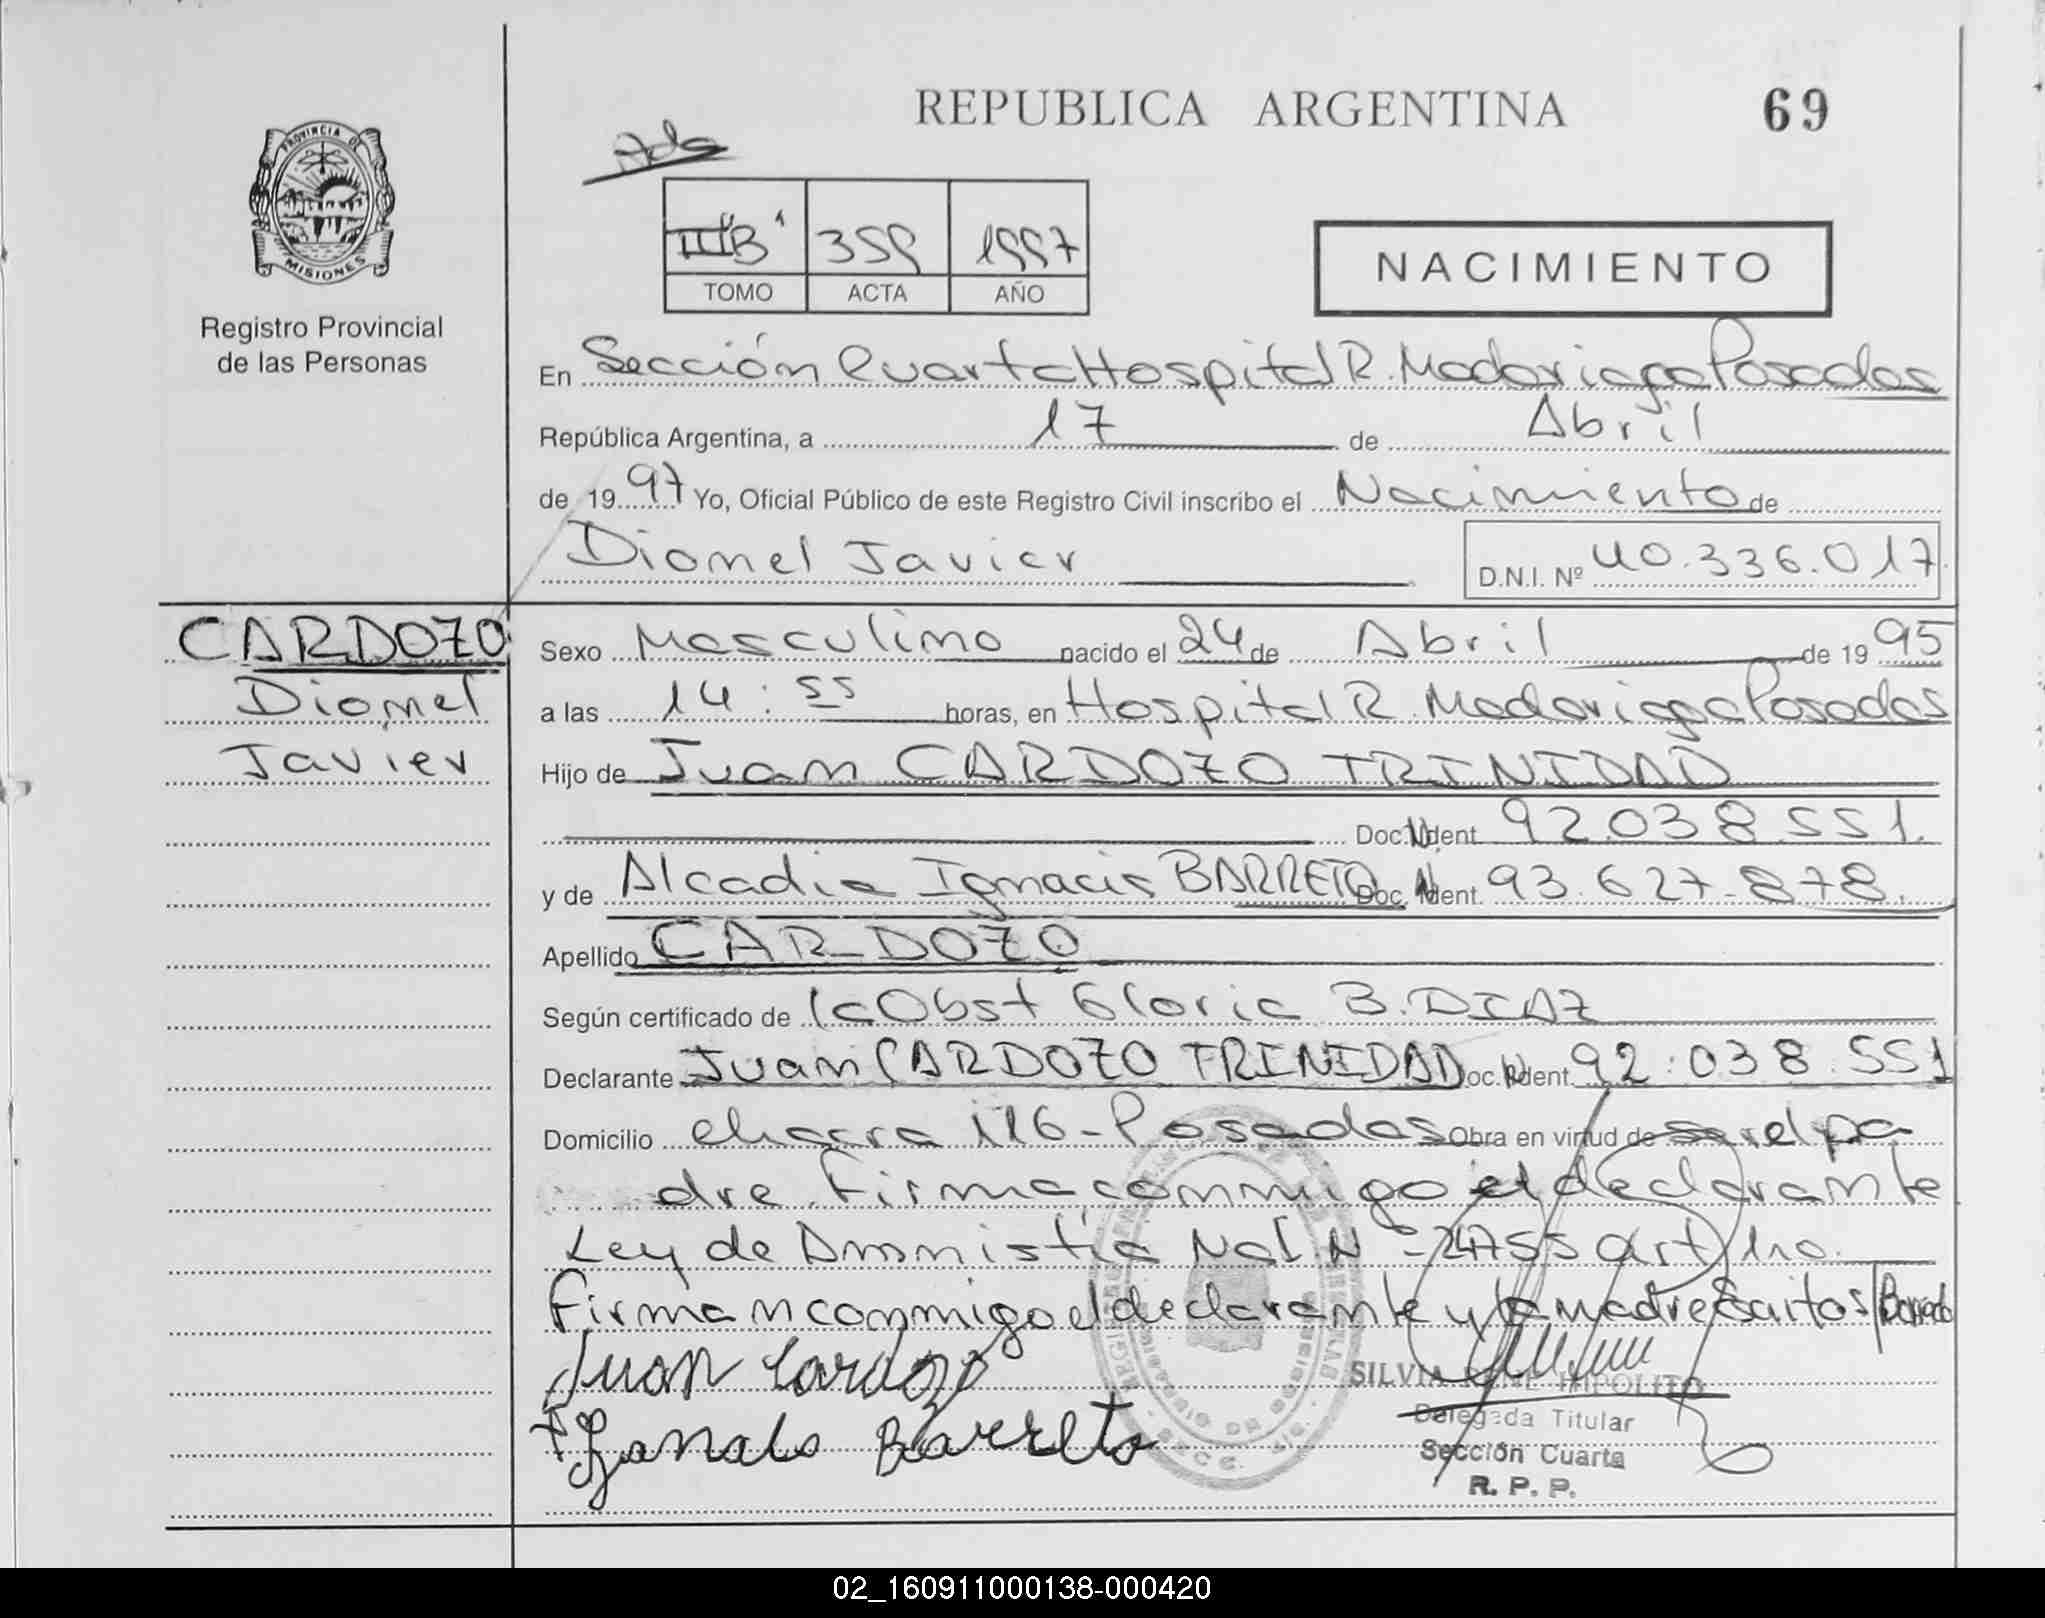 REPUBLICA ARGENTINA
69
PROVINCIA DE
MISIONES
Registro Provincial
de las Personas
III "B" 359 1997
TOMO ACTA AÑO
NACIMIENTO
En Sección Cuarta Hospital R. Madariaga Posadas
República Argentina, a 17 de Abril
de 1997 Yo, Oficial Público de este Registro Civil inscribo el Nacimiento de
Dionel Javier D.N.I. Nº 40.336.017
CARDOZO
Dionel
Javier
Sexo Masculino nacido el 24 de Abril de 1995
a las 14:55 horas, en Hospital R. Madariaga Posadas
Hijo de Juan CARDOZO TRINIDAD
Doc. Ident. 92.038.551.
y de Alcadia Ignacia BARRETO Doc. Ident. 93.627.878.
Apellido CARDOZO
Según certificado de la Obst Gloria B. DIAZ
Declarante Juan CARDOZO TRINIDAD Doc. Ident. 92.038.551
Domicilio chacra 116-Posadas Obra en virtud de ser el pa
dre. Firma conmigo el declarante
Ley de Amnistía Nal. Nº 24755 art) 1ro.
Firman conmigo el declarante y la madre
Juan Cardozo
Barreto
SILVIA RENE HIPOLITO
Delegada Titular
Sección Cuarta
R. P. P.
02_160911000138-000420